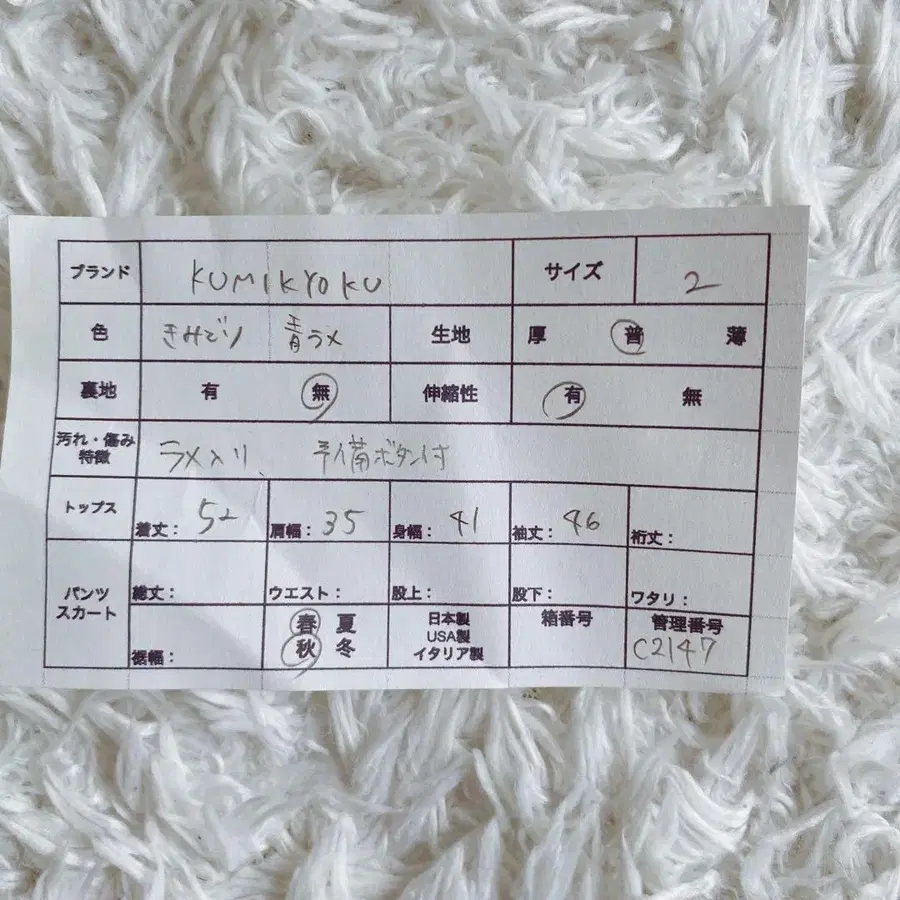 ブランド KUMIKYOKU サイズ 2
色 きみどり 青ラメ 生地 厚 普 薄
裏地 有 無 伸縮性 有 無
汚れ・傷み
特徴 ラメ入り、 予備ボタン付
トップス 着丈： 52 肩幅： 35 身幅： 41 袖丈： 46 裄丈：
パンツ
スカート
総丈： ウエスト： 股上： 股下： ワタリ：
裾幅：
春 夏
秋 冬
日本製
USA製
イタリア製
箱番号
管理番号
C2147